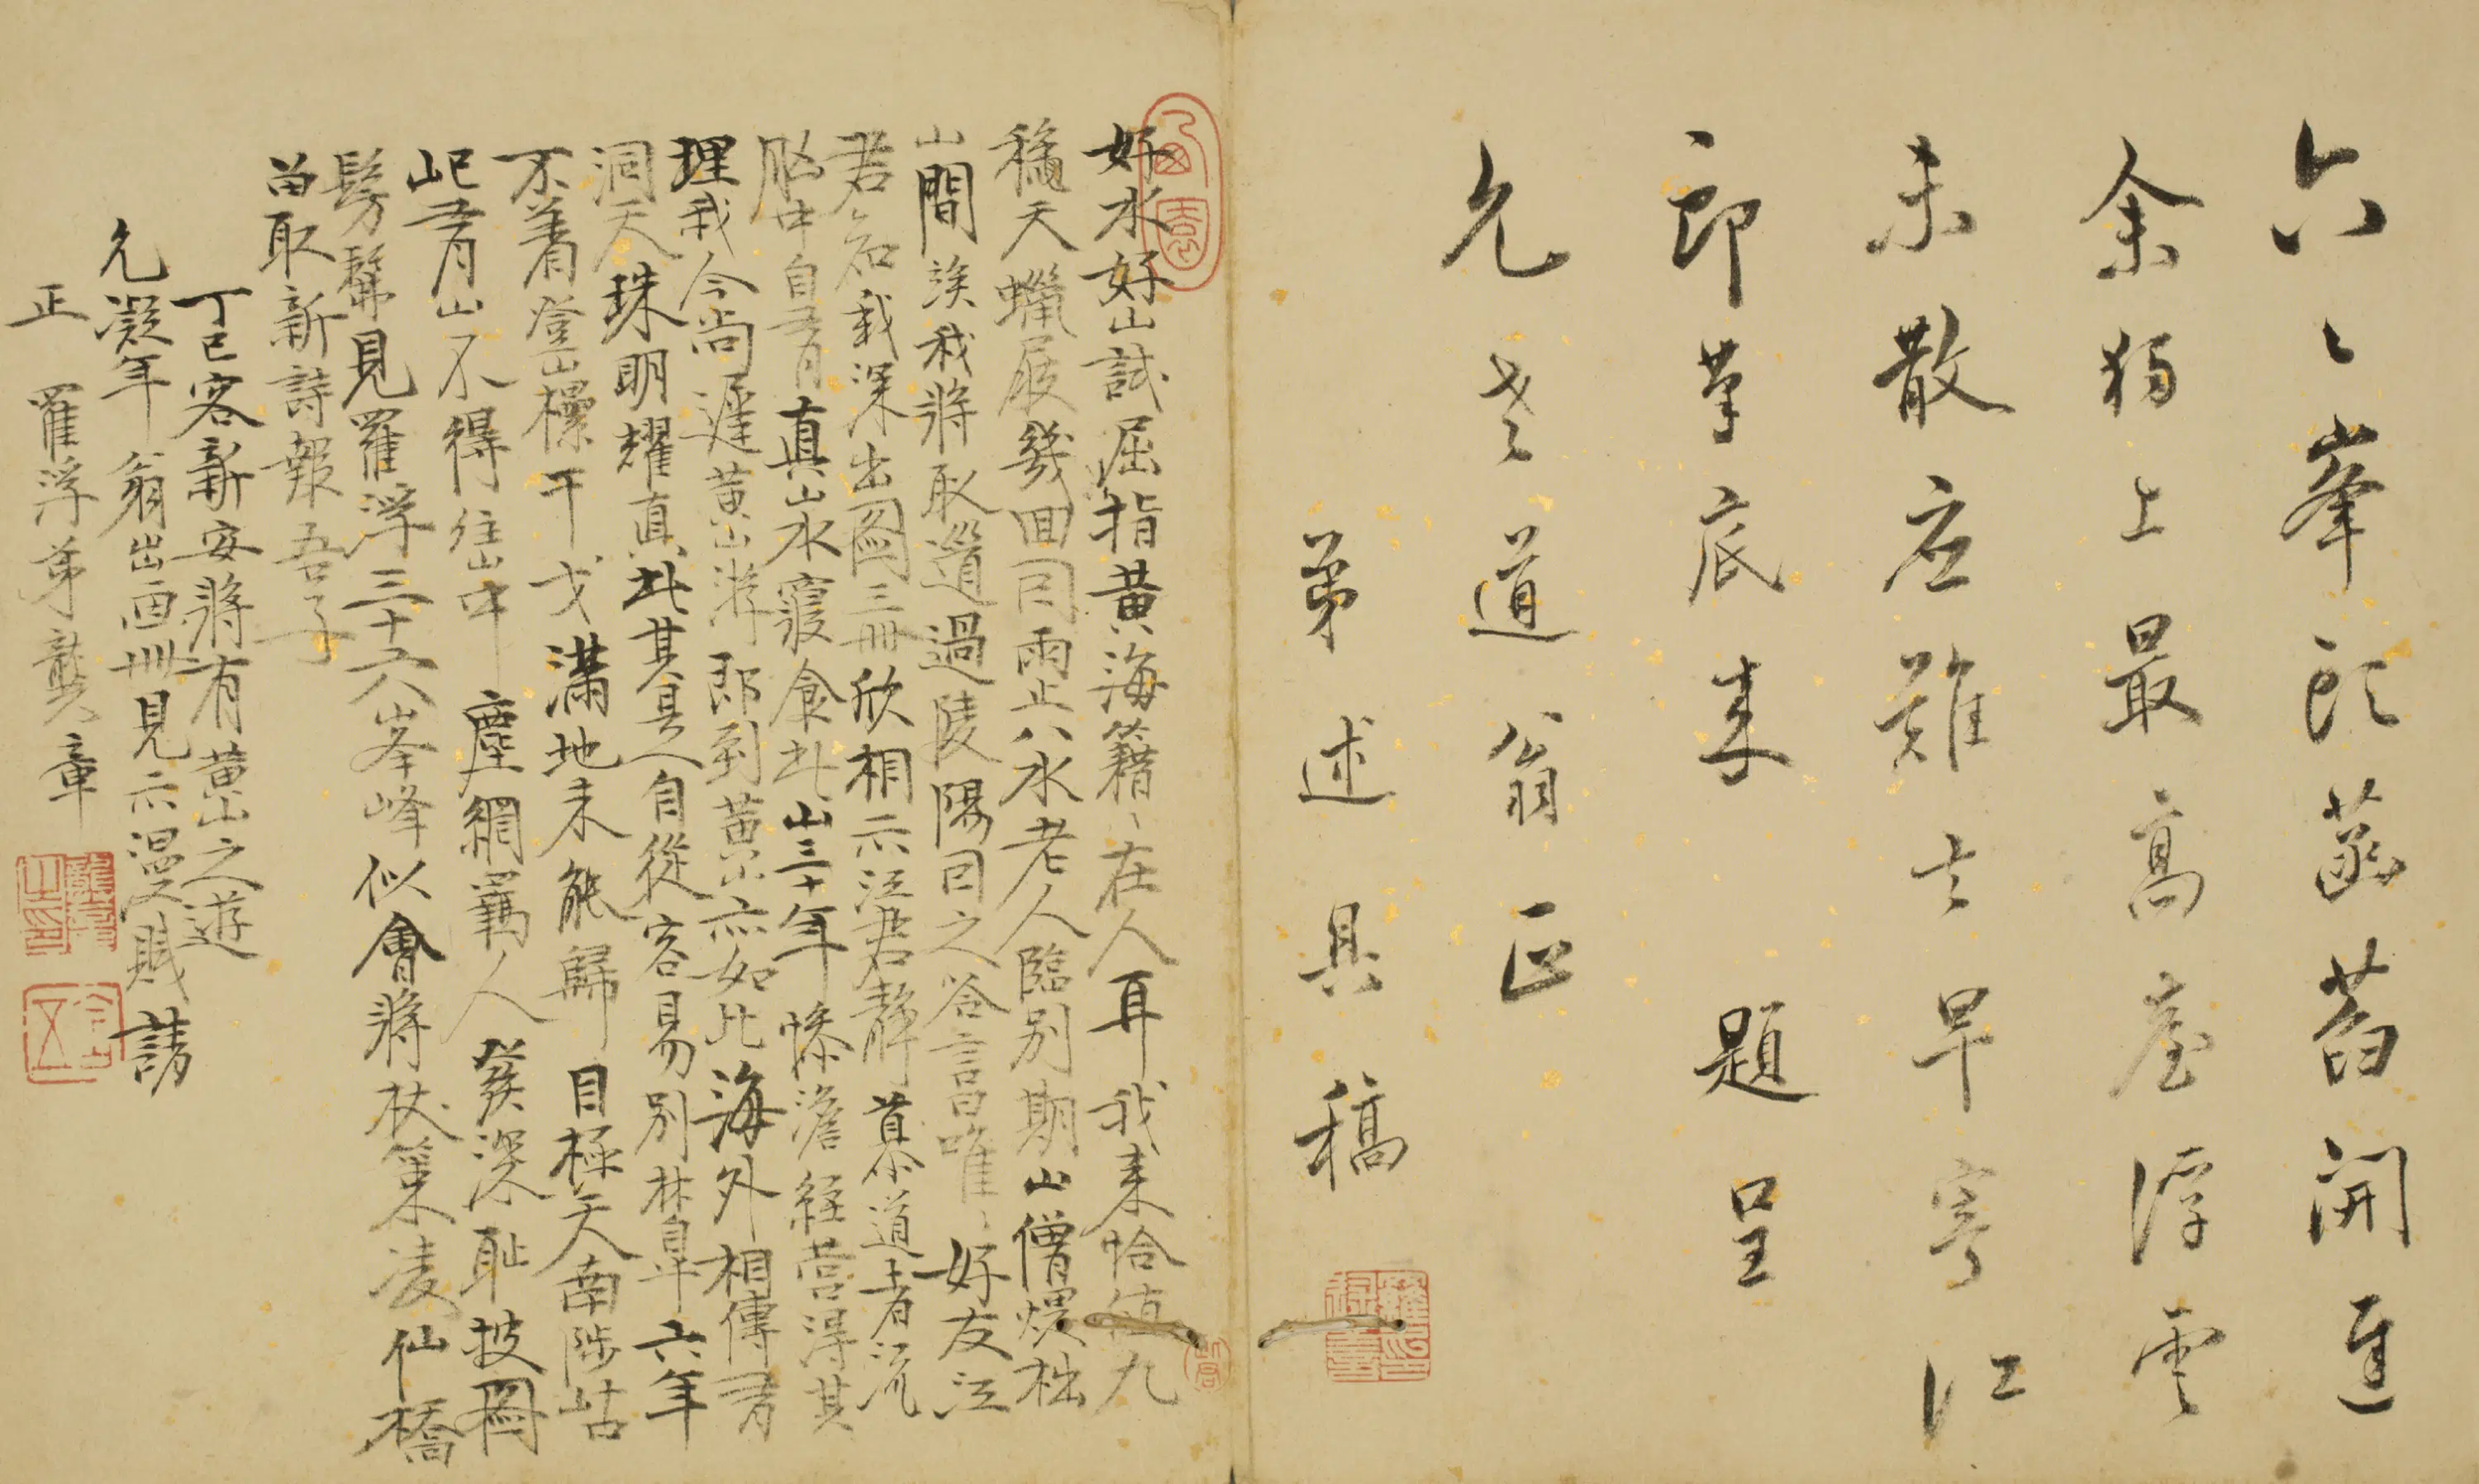 六〻峯頭菡萏開蓮
余獨上最高臺浮雲
未散應難去早寄江
郎筆底來 題呈
允老道翁正
弟述具稿
好水好山試屈指黃海籍〻在人耳我來恰值九
穐天蠟屐幾回同雨止八水老人臨別期山僧煨柮
山間俟我將取道過陵陽同之答言唯〻好友江
君知我深出圖三冊欣相示江君靜慕道者流
胸中自有真山水寢食此山三十年慘澹經營得其
理我今尚遲黃山游即到黃山亦如此海外相傳有
洞天珠明耀真此其是自從容易別林皐六年
不着登山欙干戈滿地未能歸目極天南陟岵
屺青山不得住山中塵網羈人發深恥披圖
髣髴見羅浮三十六峯峰似會將杖策凌仙橋
畱取新詩報吾子
丁巳客新安將有黃山之遊
允凝年翁出畫冊見示漫賦請
正 羅浮弟龔章